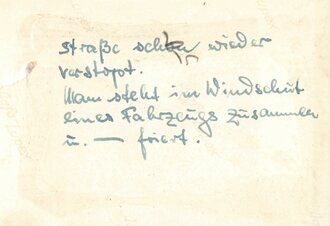 Straße schon wieder
verstopt.
Man steht im Windschut
eines Fahrzeugs zusammen
u. — friert.